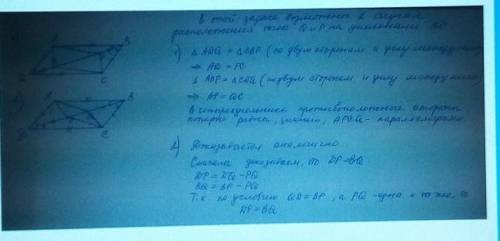 В этой задаче возможны 2 случая
расположения точек Q и P на диагонали BD
1) △ADQ = △CBP (по двум сторонам и углу между ними)
⇒ AQ = PC
△ABP = △CDQ (по двум сторонам и углу между ними)
⇒ AP = QC
В четырехугольнике противоположные стороны
попарно равны, значит, APCQ - параллелограмм.
2) Доказывается аналогично
Сначала доказываем, что DP=BQ
DP = DQ - PQ
BQ = BP - PQ
Т.к. по условию QD = BP, а PQ - одно и то же, то
DP = BQ